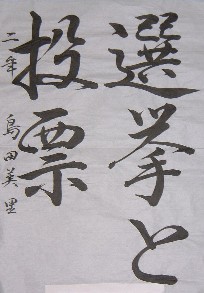 選挙と
投票
二年 島田美里